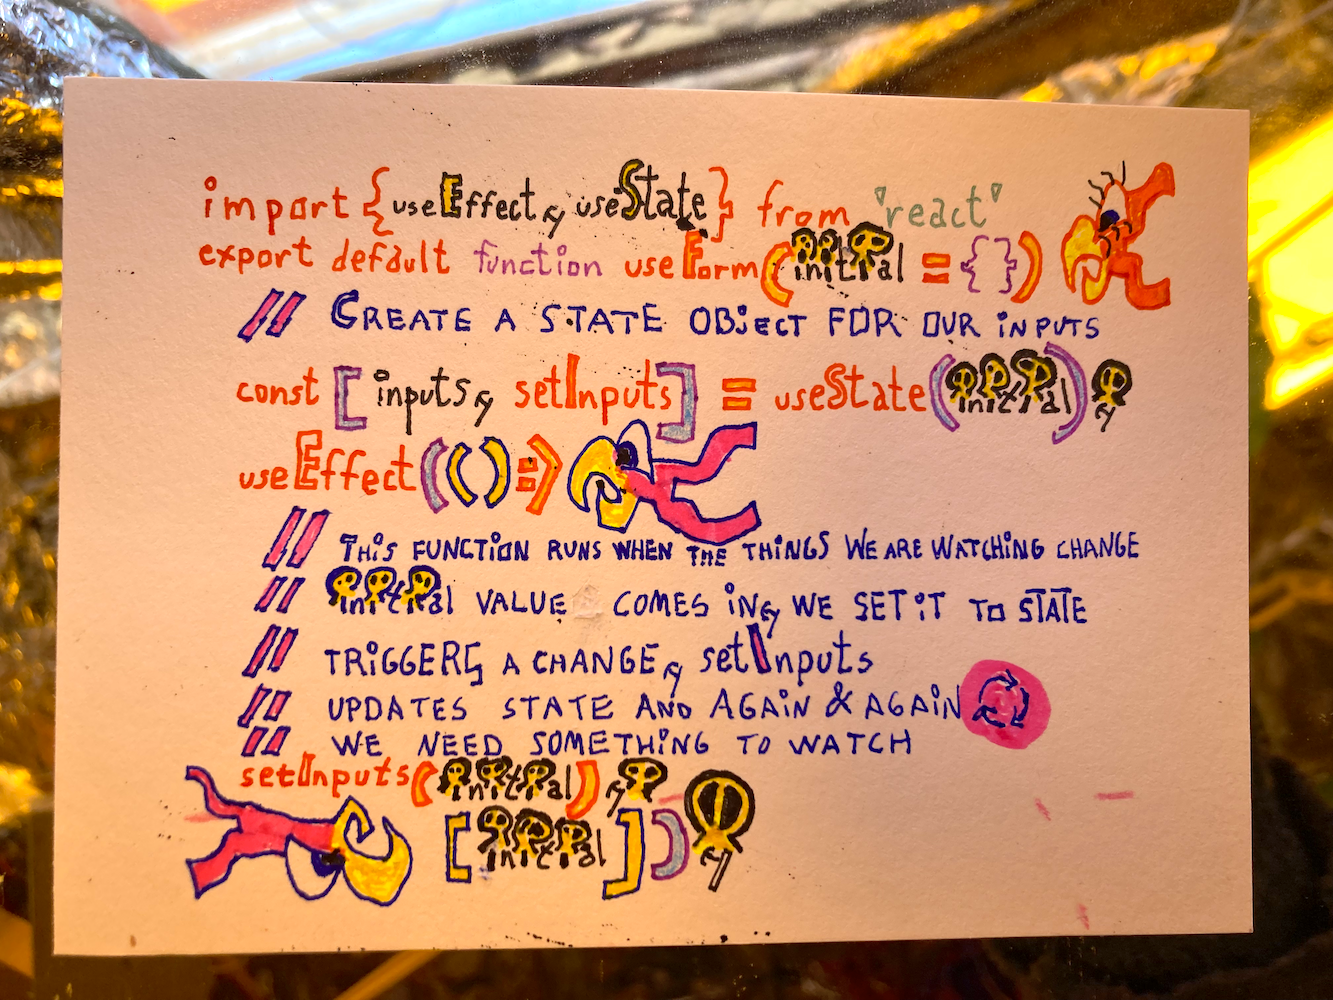 import {useEffect, useState} from 'react'
export default function useForm(initial = {}) {
// CREATE A STATE OBJECT FOR OUR INPUTS
const [inputs, setInputs] = useState(initial);
useEffect(() => {
// THIS FUNCTION RUNS WHEN THE THINGS WE ARE WATCHING CHANGE
// initial VALUE COMES IN, WE SET IT TO STATE
// TRIGGERS A CHANGE, setInputs
// UPDATES STATE AND AGAIN & AGAIN
// WE NEED SOMETHING TO WATCH
setInputs(initial);
}, [initial]);